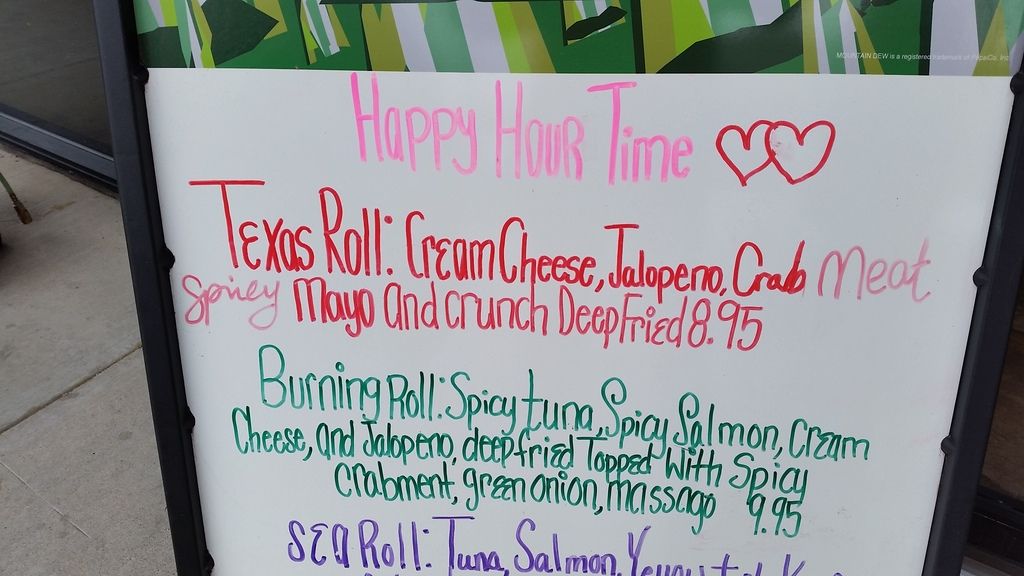 MOUNTAIN DEW is a registered trademark of PepsiCo, Inc.
Happy Hour Time
Texas Roll: Cream Cheese, Jalopeno, Crab Meat
Spicy Mayo and crunch Deep Fried 8.95
Burning Roll: Spicy tuna, Spicy Salmon, Cream
Cheese, and Jalopeno, deepfried Topped With Spicy
Crabment, green onion, massago 9.95
SEA Roll: Tuna, Salmon,